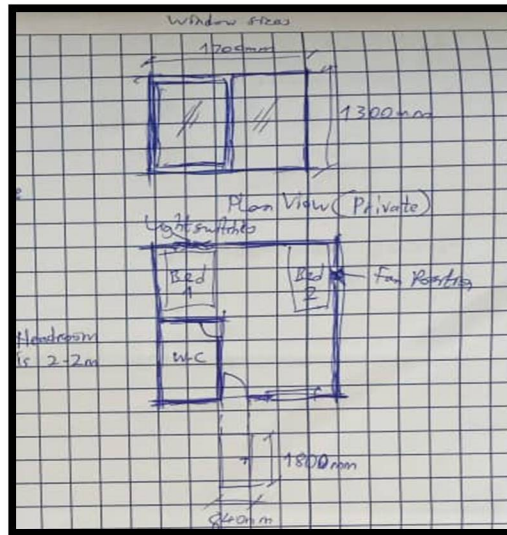 Window sizes
1700mm
1300mm
Plan View (Private)
Light switches
Bed
1
Bed
2
Fan Position
Headroom
is 2.2m
W-C
1800mm
840mm